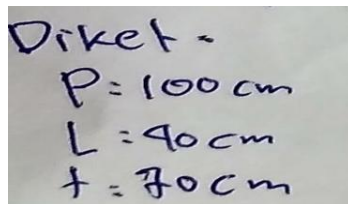 Diket =
P = 100 cm
L = 40 cm
t = 70 cm